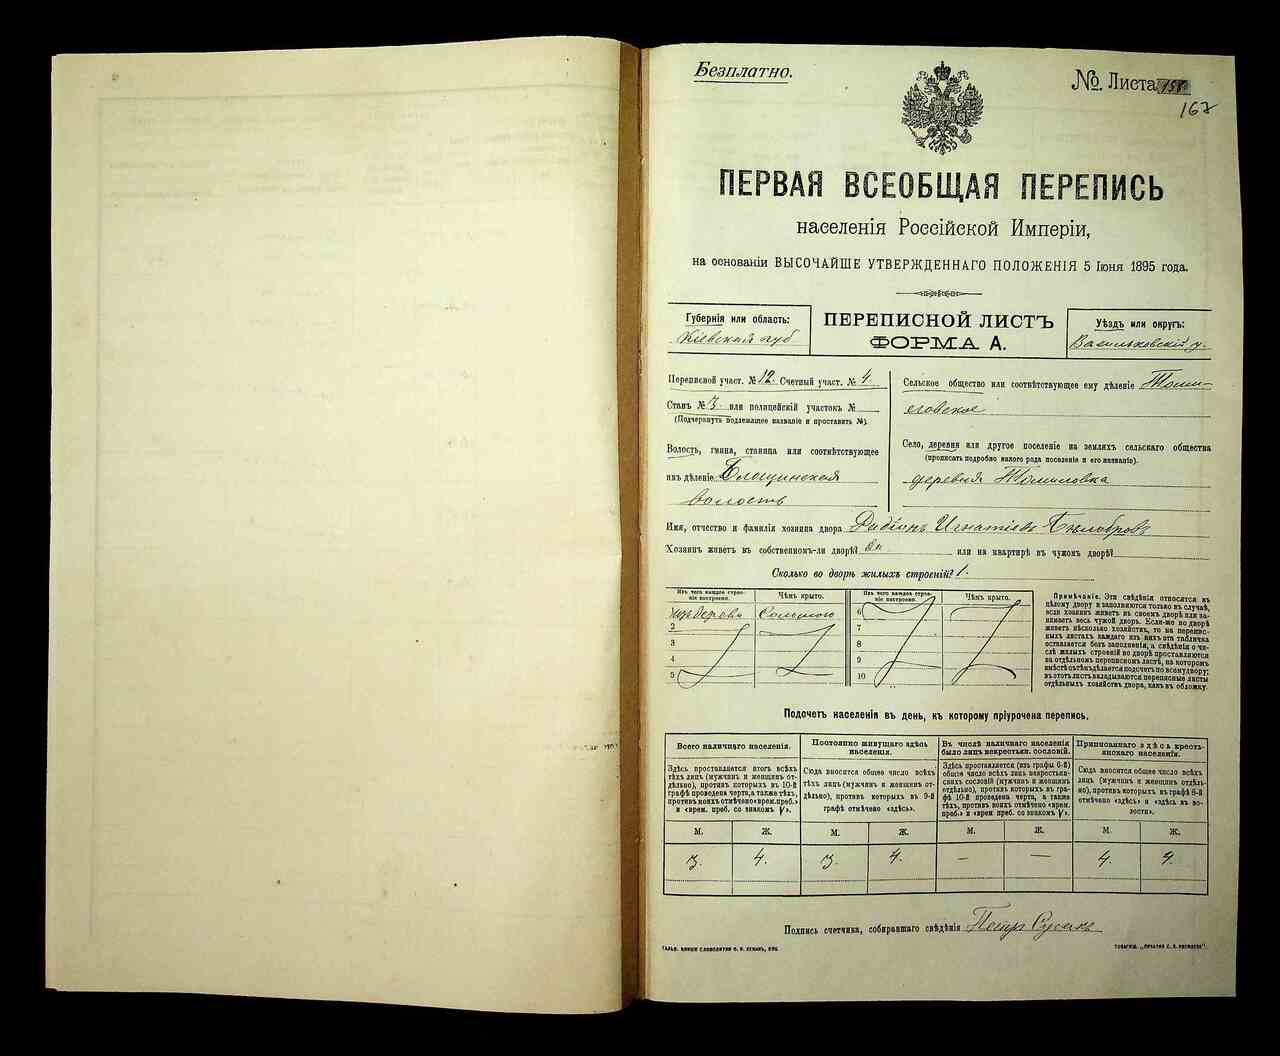 Безплатно.
№. Листа 158
167
ПЕРВАЯ ВСЕОБЩАЯ ПЕРЕПИСЬ
населенія Россійской Имперіи,
на основаніи ВЫСОЧАЙШЕ УТВЕРЖДЕННАГО ПОЛОЖЕНІЯ 5 Іюня 1895 года.
Губернія или область:
Кіевская губ
ПЕРЕПИСНОЙ ЛИСТЪ
ФОРМА А.
Уѣздъ или округъ:
Васильковскій у.
Переписной участ. № 12. Счетный участ. № 4.
Станъ № 3. или полицейскій участокъ №
(Подчеркнуть подлежащее названіе и проставить №).
Волость, гмина, станица или соотвѣтствующее
имъ дѣленіе Блощинская
волость
Сельское общество или соотвѣтствующее ему дѣленіе Томи-
Село, деревня или другое поселеніе на земляхъ сельскаго общества
(прописать подробно какого рода поселеніе и его названіе).
деревня Томиловка
Имя, отчество и фамилія хозяина двора Радіонъ Игнатіевъ Бѣлобровъ
Хозяинъ живетъ въ собственномъ-ли дворѣ? да или на квартирѣ въ чужомъ дворѣ?
Сколько во дворѣ жилыхъ строеній? 1.
Изъ чего каждое строе-
ніе построено.
Чѣмъ крыто.
Изъ чего каждое строе-
ніе построено.
Чѣмъ крыто.
изъ дерева Соломою 6
2 7
3 8
4 9
5 10
Примѣчаніе. Эти свѣдѣнія относятся къ
цѣлому двору и заполняются только въ случаѣ,
если хозяинъ живетъ въ своемъ дворѣ или за-
нимаетъ весь чужой дворъ. Если-же во дворѣ
живетъ нѣсколько хозяйствъ, то на перепис-
ныхъ листахъ каждаго изъ нихъ эта табличка
оставляется безъ заполненія, а свѣдѣнія о чи-
слѣ жилыхъ строеній во дворѣ проставляются
на отдѣльномъ переписномъ листѣ, на которомъ
вмѣстѣ съ тѣмъ дѣлается подсчетъ по всему двору;
въ этотъ листъ вкладываются переписные листы
отдѣльныхъ хозяйствъ двора, какъ въ обложку.
Подсчетъ населенія въ день, къ которому пріурочена перепись.
Всего наличнаго населенія.
Здѣсь проставляется итогъ всѣхъ
тѣхъ лицъ (мужчинъ и женщинъ от-
дѣльно), противъ которыхъ въ 10-й
графѣ проведена черта, а также тѣхъ,
противъ коихъ отмѣчено «врем. преб.»
и «врем. преб. со знакомъ V».
Постоянно живущаго здѣсь
населенія.
Сюда вносится общее число всѣхъ
тѣхъ лицъ (мужчинъ и женщинъ от-
дѣльно), противъ которыхъ въ 9-й
графѣ отмѣчено «здѣсь».
Въ числѣ наличнаго населенія
было лицъ некрестьян. сословій.
Здѣсь проставляется (изъ графы 6-й)
общее число всѣхъ лицъ некрестьян-
скихъ сословій (мужчинъ и женщинъ
отдѣльно), противъ которыхъ въ гра-
фѣ 10-й проведена черта, а также
тѣхъ, противъ коихъ отмѣчено «врем.
преб.» и «врем. преб. со знакомъ V».
Приписаннаго здѣсь кресть-
янскаго населенія.
Сюда вносится общее число всѣхъ
лицъ (мужчинъ и женщинъ отдѣль-
но), противъ которыхъ въ графѣ 8-й
отмѣчено «здѣсь» и «здѣсь въ во-
лости».
М. Ж. М. Ж. М. Ж. М. Ж.
3. 4. 3. 4. — — 4. 4.
Подпись счетчика, собиравшаго свѣдѣнія Петръ Русакъ